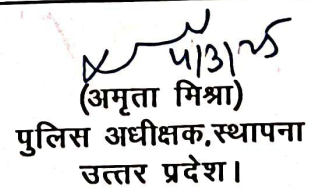 4/3/25
(अमृता मिश्रा)
पुलिस अधीक्षक,स्थापना
उत्तर प्रदेश।